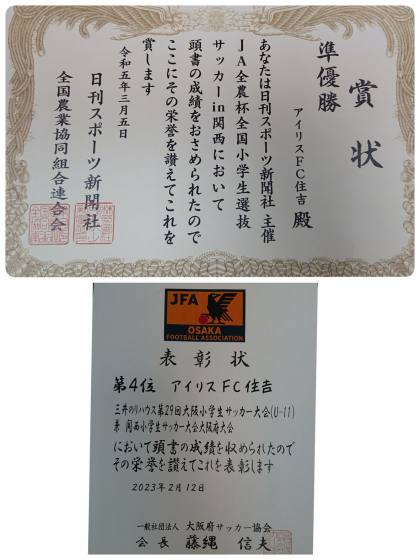 賞状
準優勝
アイリスFC住吉 殿
あなたは日刊スポーツ新聞社 主催
JA全農杯全国小学生選抜
サッカーin関西において
頭書の成績をおさめられたので
ここにその栄誉を讃えてこれを
賞します
令和五年三月五日
日刊スポーツ新聞社
全国農業協同組合連合会
JFA
OSAKA
FOOTBALL ASSOCIATION
表彰状
第4位 アイリスFC住吉
三井のリハウス第29回大阪小学生サッカー大会(U-11)
兼 関西小学生サッカー大会大阪府大会
において頭書の成績を収められたので
その栄誉を讃えてこれを表彰します
2023年2月12日
一般社団法人 大阪府サッカー協会
会長 藤縄 信夫